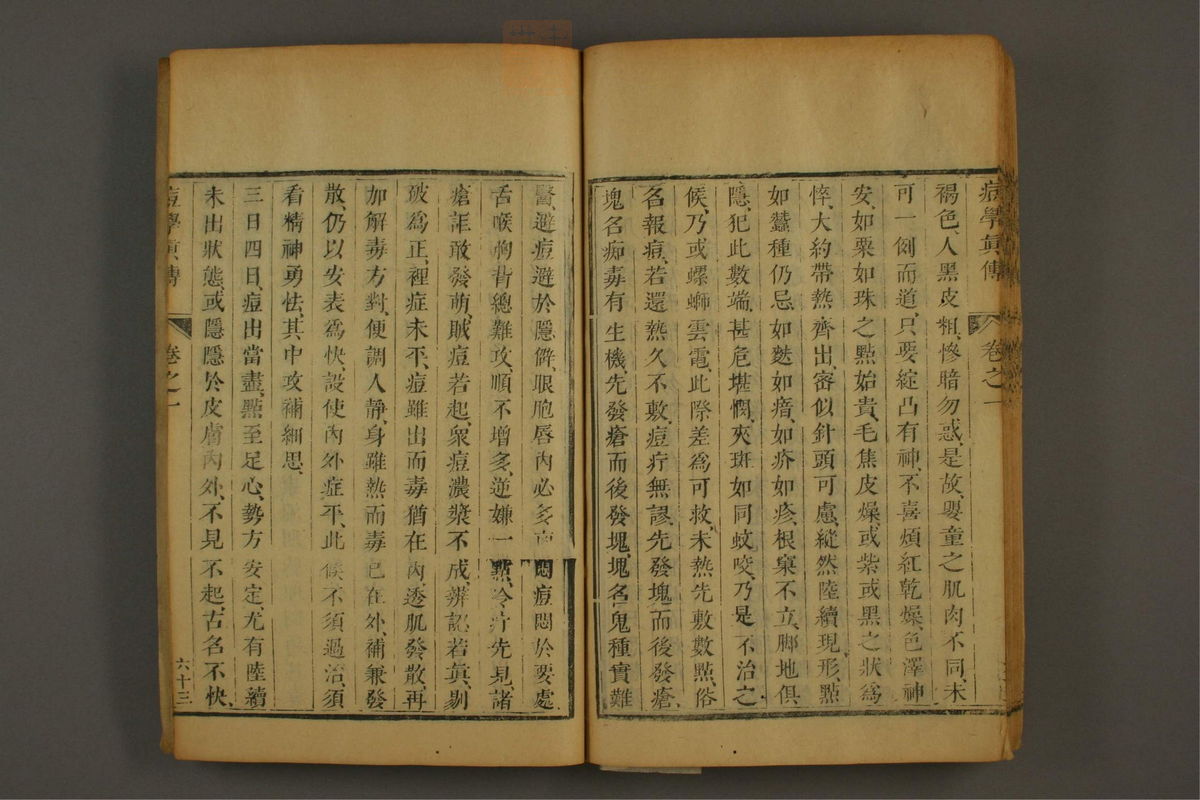 痘學真傳 卷之一
褐色、人黑皮粗、慘暗勿惑、是故嬰童之肌肉不同、未
可一例而道、只要綻凸有神、不喜煩紅乾燥、色澤神
安、如粟如珠之點始貴、毛焦皮燥、或紫或黑之狀為
悴、大約帶熱齊出、密似針頭可慮、縱然陸續現形、點
如蠶種仍忌、如麩如瘄、如疥如疹、根窠不立、腳地俱
隱、犯此數端、甚危堪憫、夾斑如同蚊咬、乃是不治之
候、乃或螺螄雲電、此際差為可救、未熱先敷數點、俗
名報痘、若還熱久不敷、痘疔無謬、先發塊而後發瘡、
塊名痴毒有生機、先發瘡而後發塊、塊名鬼種實難
醫、避痘避於隱僻、眼胞唇內必多 悶痘悶於要處
舌喉胸背總難攻、順不增多、逆嫌一點、冷疔先見、諸
瘡誰敢發萌、賊痘若起、衆痘濃漿不成、辨認若真、剔
破為正、裡症未平、痘雖出而毒猶在內、透肌發散、再
加解毒方對、便調人靜、身雖熱而毒已在外、補兼發
散、仍以安表為快、設使內外症平、此候不須過治、須
看精神勇怯、其中攻補細思、
三日四日、痘出當盡、點至足心、勢方安定、尤有陸續
未出狀態、或隱隱於皮膚內外、不見不起、古名不快、
痘學真傳 卷之一 六十三